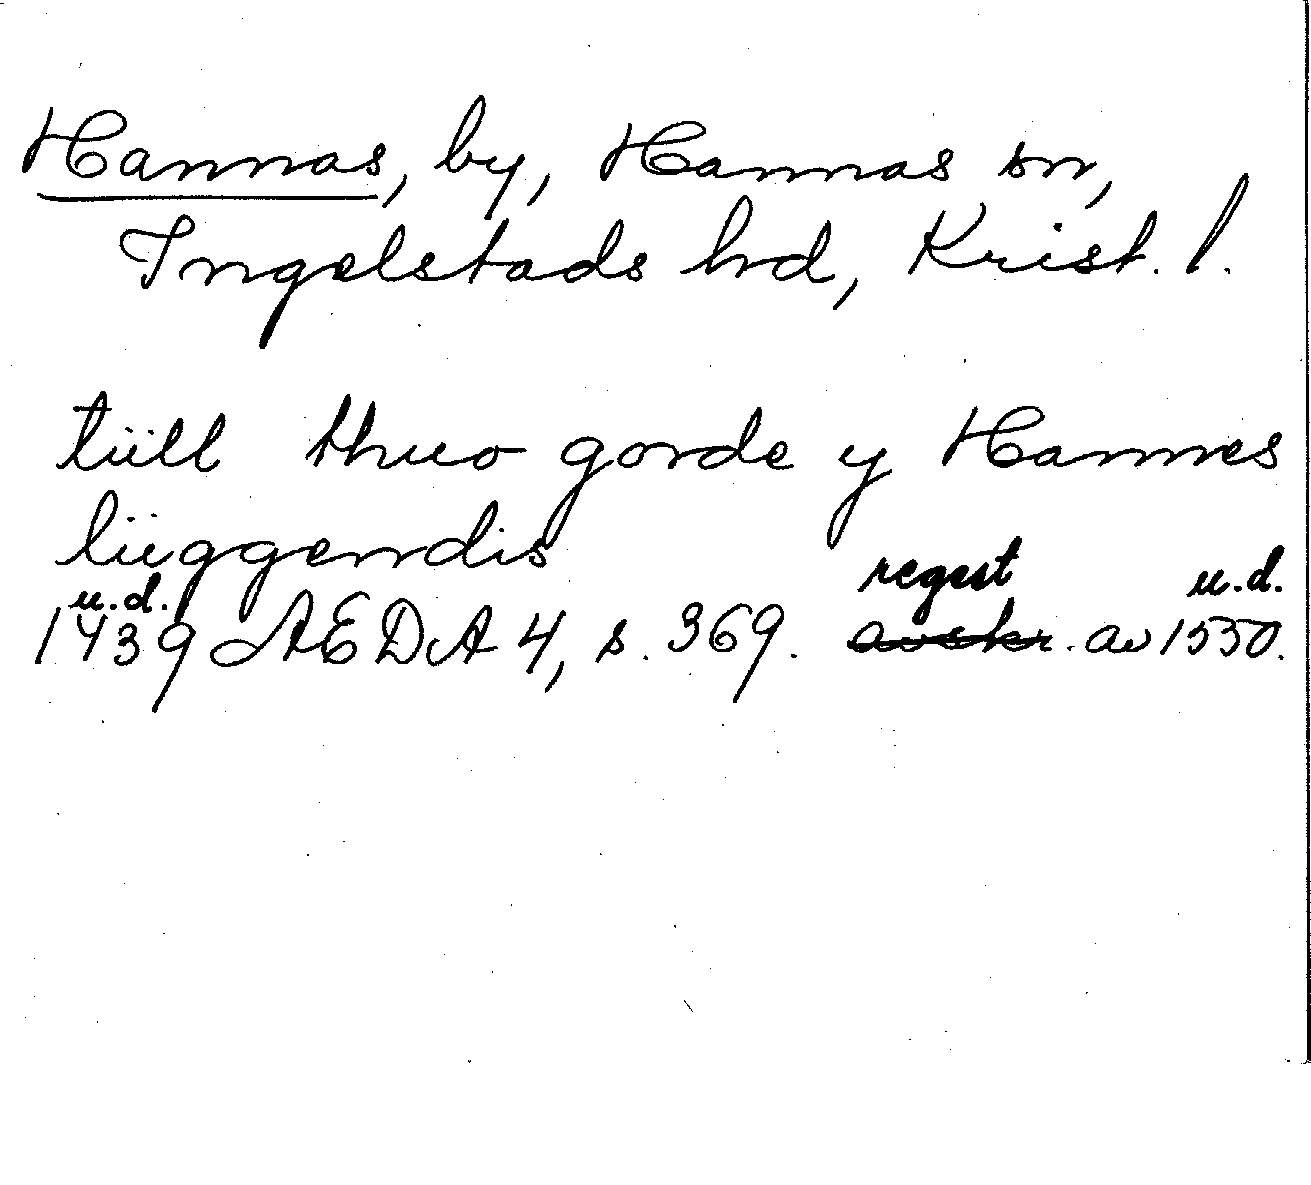 Hannas, by, Hannas sn,
Ingelstads hd, Krist. l.
tiill thuo gorde y Hannes
liiggendis
u.d. regest u.d.
1439 ÆDA 4, s. 369. avskr. av 1550.